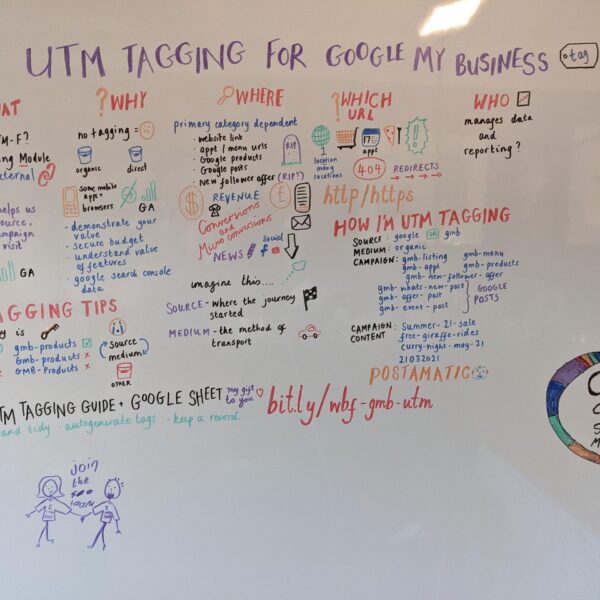 UTM TAGGING FOR GOOGLE MY BUSINESS
tag
AT
TM-F?
ng Module
ternal
helps us
source,
ampaign
visit
GA
? WHY
no tagging =
organic
direct
some mobile
apps +
browsers
GA
• demonstrate your
value
• secure budget
• understand value
of features
• google search console
data
WHERE
primary category dependent
• website link
• appt / menu urls
• Google products
• Google posts
• New follower offer (RIP?)
RIP
$
REVENUE
£
Conversions
and
Micro conversions
NEWS
Social
f
imagine this....
SOURCE - where the journey
started
MEDIUM - the method of
transport
? WHICH
URL
1
location
many
locations
17
appt
404
REDIRECTS
http/https
WHO
manages data
and
reporting?
HOW I'M UTM TAGGING
SOURCE: google OR gmb
MEDIUM: organic
CAMPAIGN: gmb-listing gmb-menu
gmb-appt gmb-products
gmb-new-follower-offer
gmb-whats-new-post
gmb-offer-post
gmb-event-post
GOOGLE
POSTS
CAMPAIGN: Summer-21-sale
CONTENT free-giraffe-rides
curry-night-may-21
21032021
POSTAMATIC
AGGING TIPS
y is
gmb-products
Gmb-products x
GMB-Products x
Source
medium
OTHER
TM TAGGING GUIDE + GOOGLE SHEET
my gift
to you
bit.ly/wbf-gmb-utm
and tidy • autogenerate tags • keep a record
join
the
seo
team